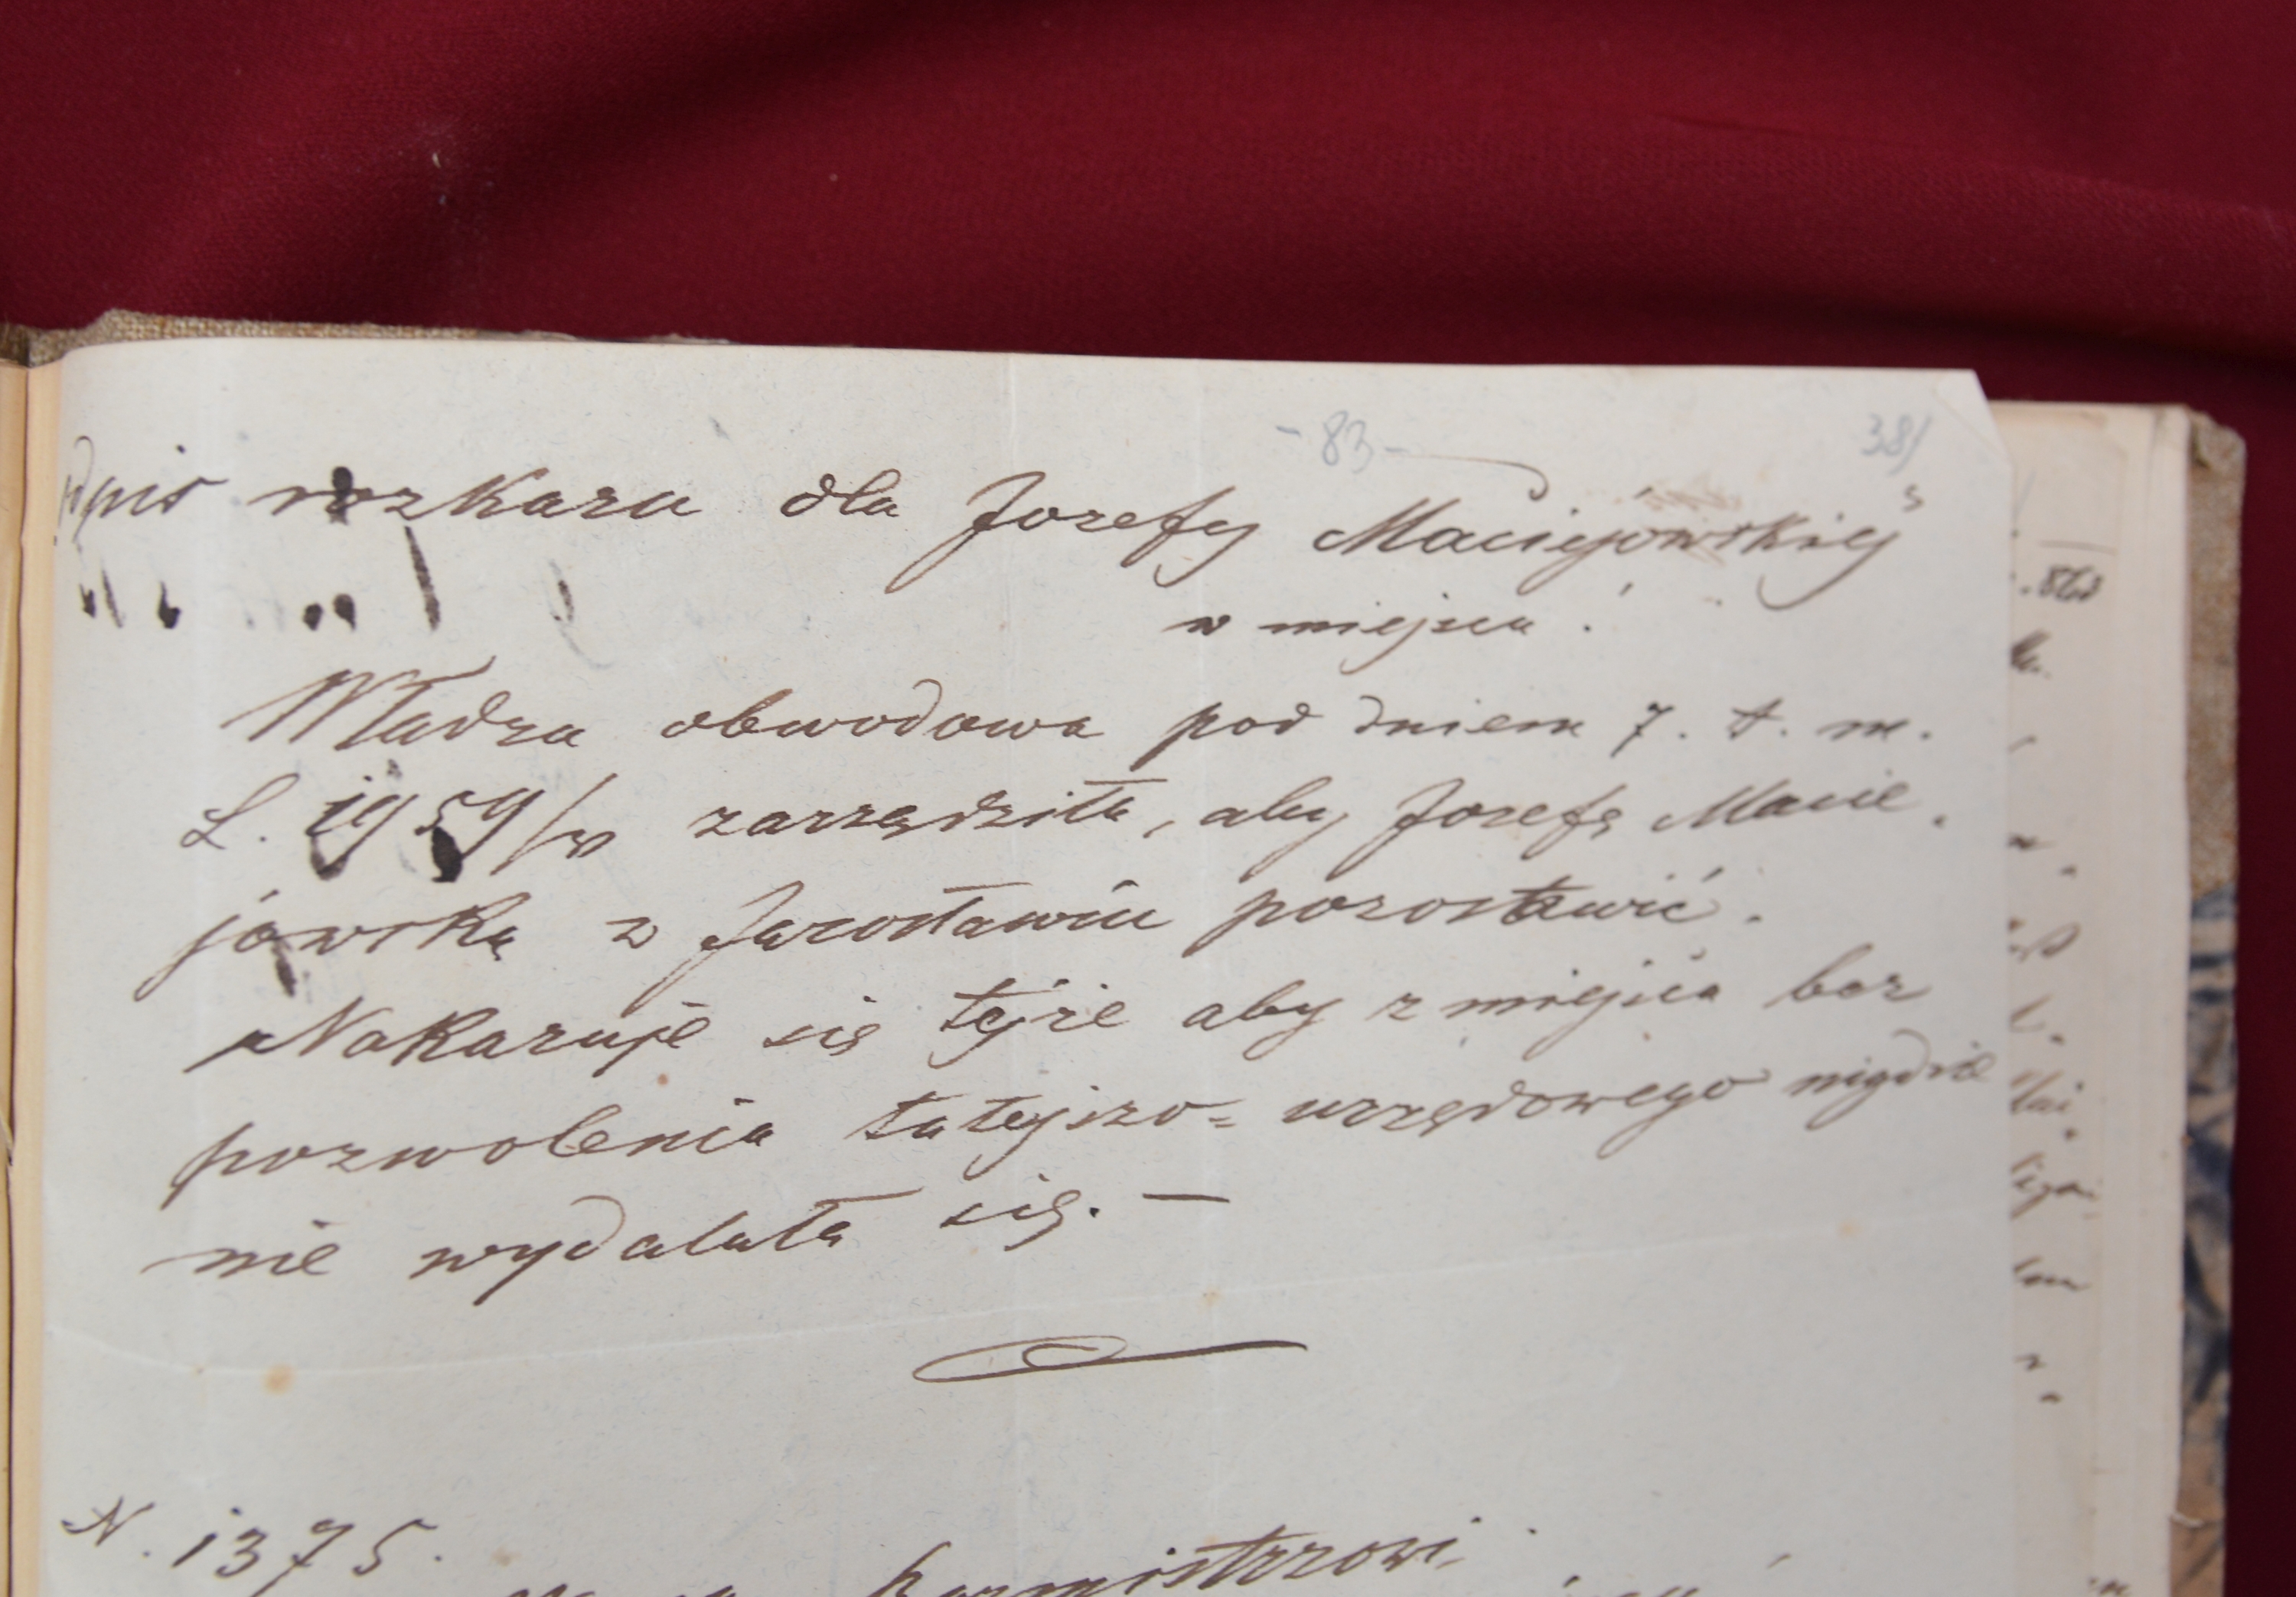 - 83 -
381
Odpis rozkazu dla Jozefy Maciejówskiej
w miejscu!
Władza obwodowa pod dniem 7. t. m.
L. 1959/w zarządziła, aby Jozefę Macie.
jówską w Jarosławiu pozostawić.
Nakazuje się tejże aby z miejsca bez
pozwolenia tutejszo= urzędowego nigdzie
nie wydalała się. —
N. 1375.
burmistrzowi